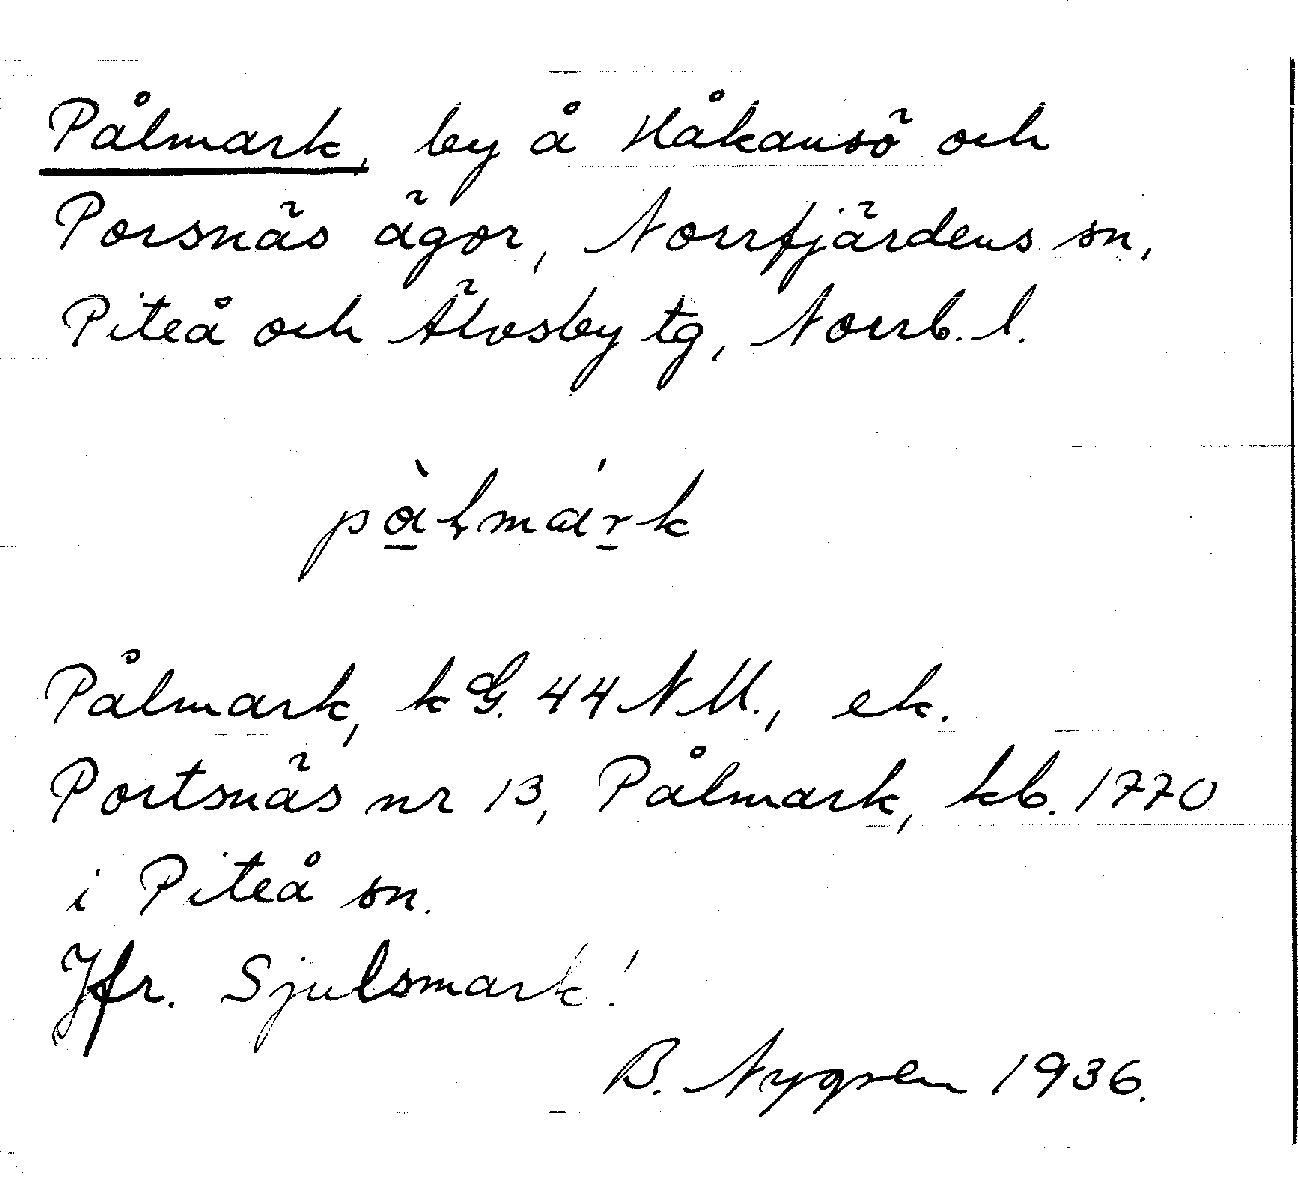 Pålmark, by å Håkansö och
Porsnäs ägor, Norrfjärdens sn,
Piteå och Älvsby tg, Norrb. l.
pàlmárk
Pålmark, k G. 44 NM., ek.
Portsnäs nr 13, Pålmark, kb. 1770
i Piteå sn.
Jfr. Sjulsmark!
B. Nygren 1936.